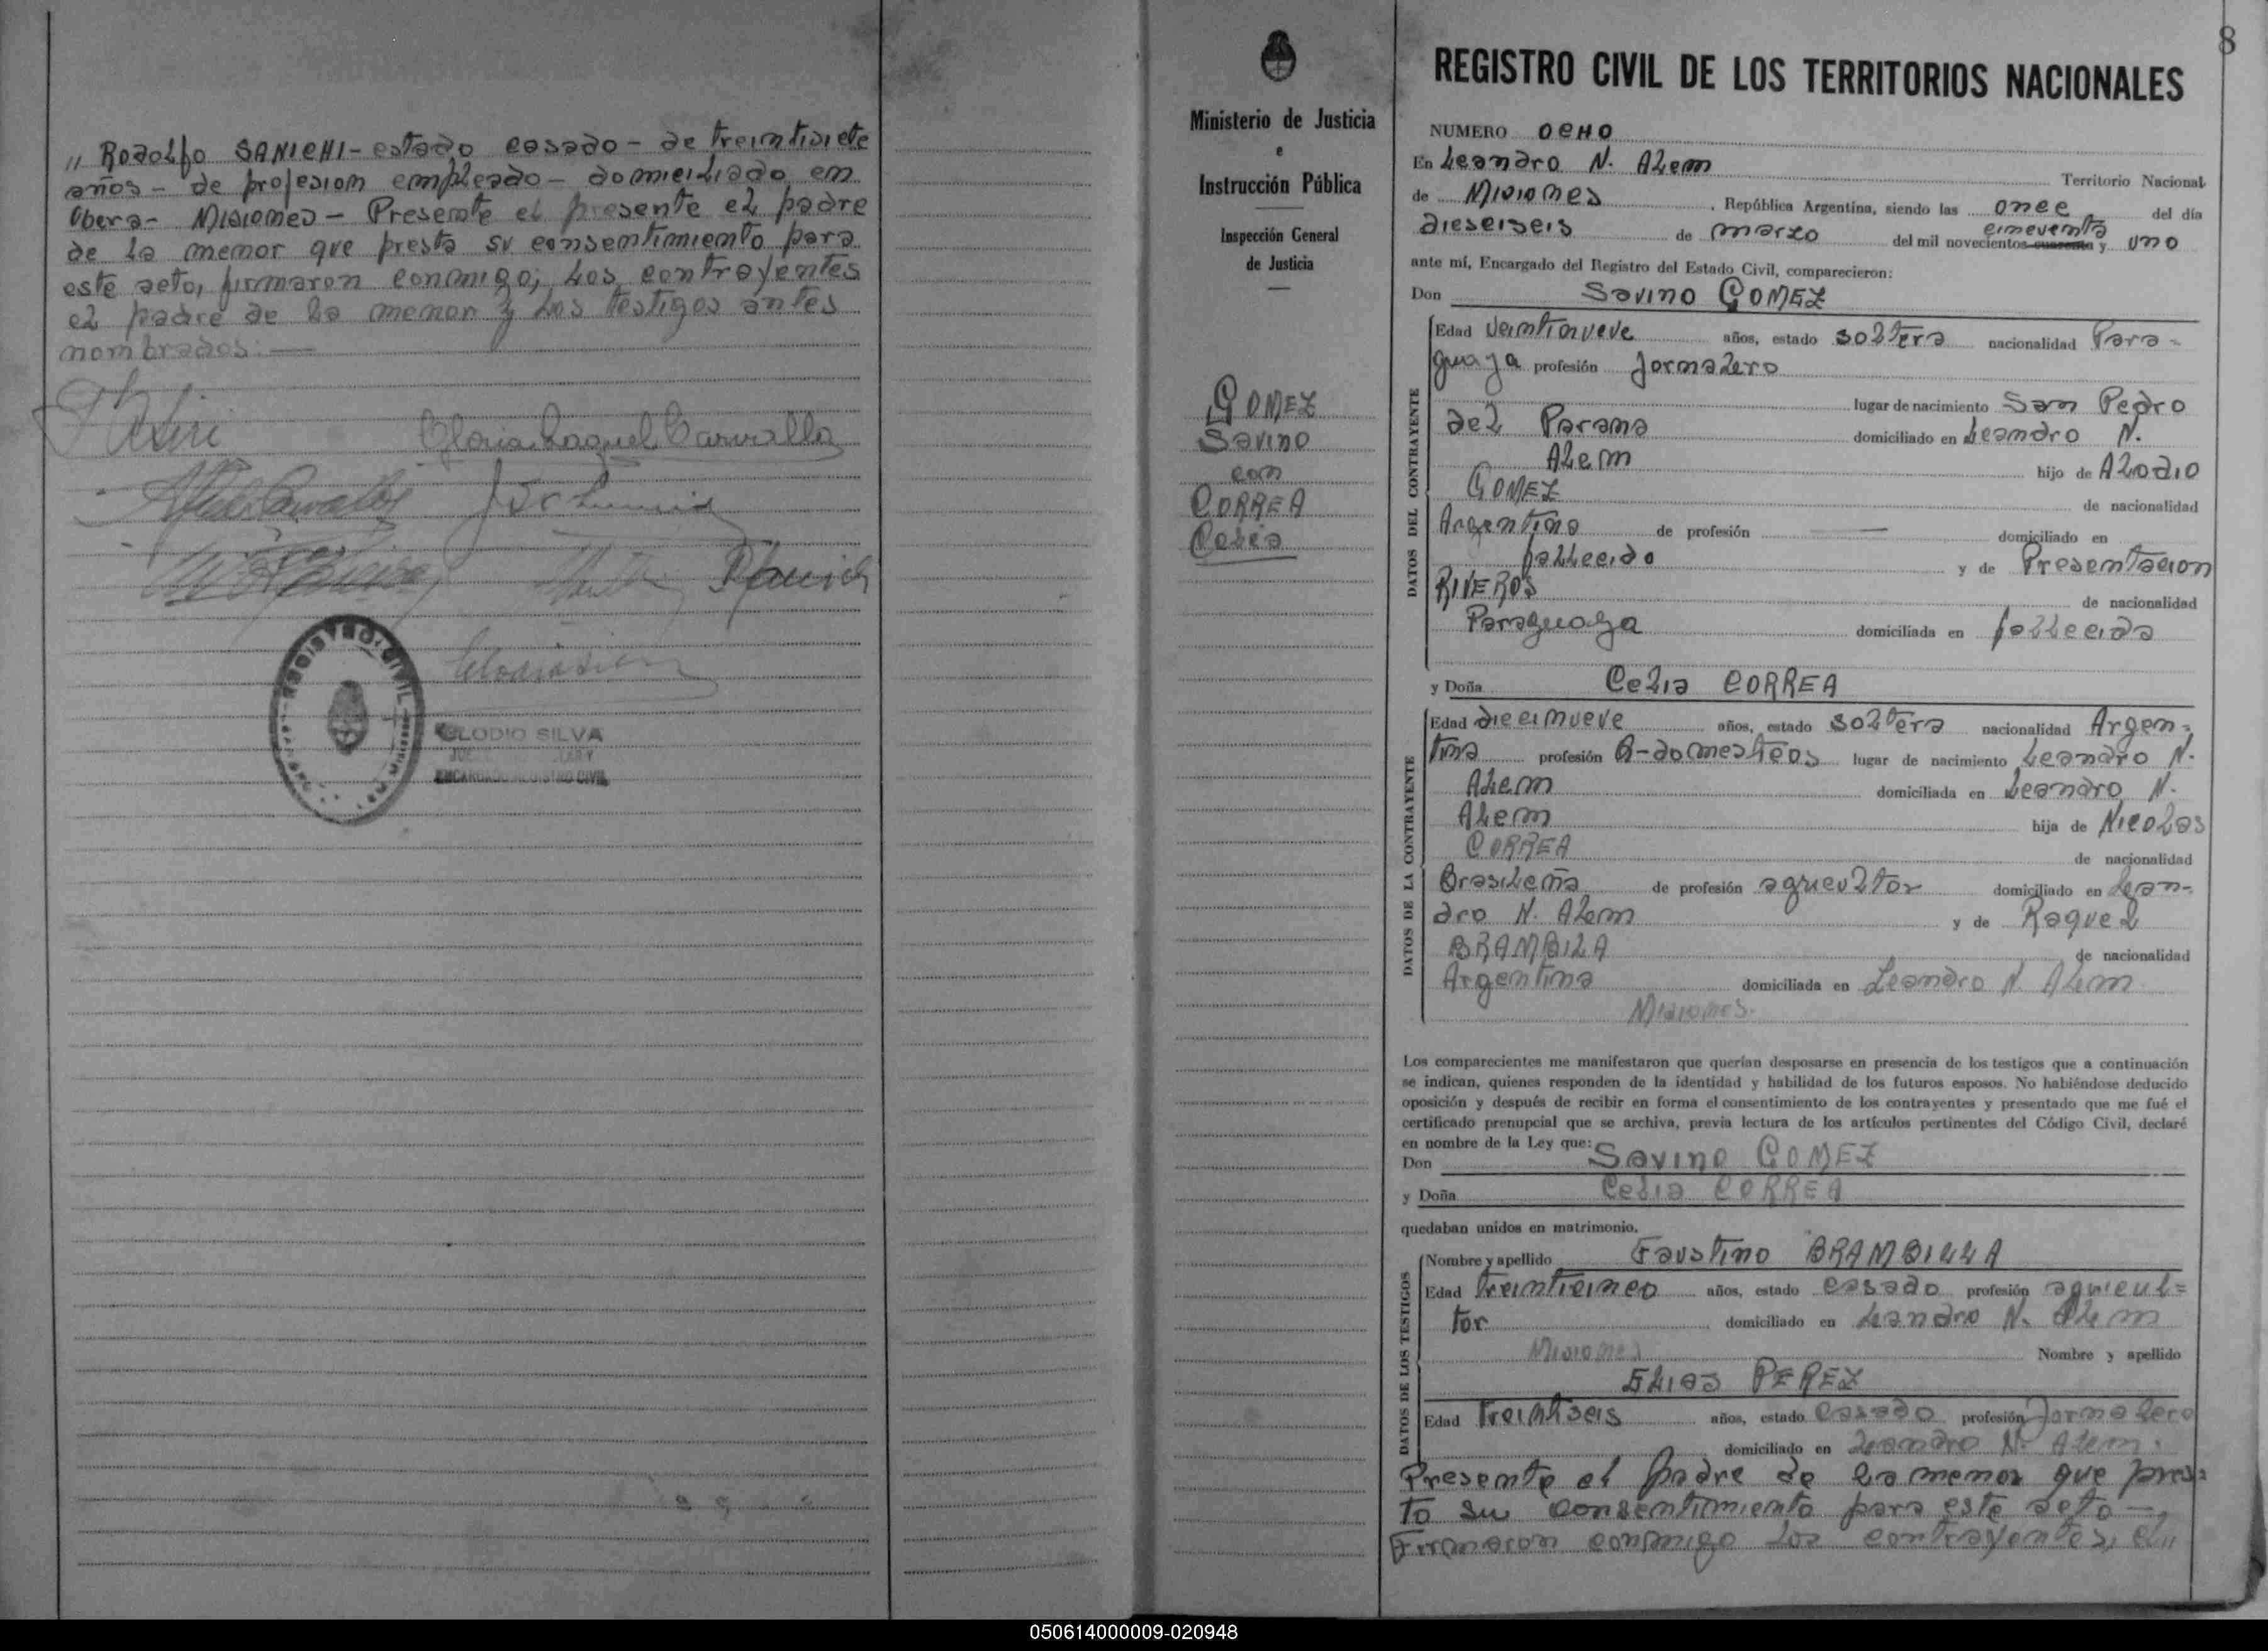 „ Rodolfo SANICHI - estado casado - de treintisiete
años - de profesion empleado - domiciliado en
Obera - Misiones - Presente el presente el padre
de la menor que presta su consentimiento para
este acto, firmaron conmigo, los contrayentes
el padre de la menor y los testigos antes
nombrados: —
Gloria Raquel Carvallo
REGISTRO CIVIL
CLODIO SILVA
ENCARGADO REGISTRO CIVIL
Ministerio de Justicia
e
Instrucción Pública
Inspección General
de Justicia
GOMEZ
Savino
con
CORREA
Celia
8
REGISTRO CIVIL DE LOS TERRITORIOS NACIONALES
NUMERO OCHO
En Leandro N. Alem Territorio Nacional
de Misiones, República Argentina, siendo las once del día
dieseiseis de marzo del mil novecientos cuarenta y cincuenta uno
ante mí, Encargado del Registro del Estado Civil, comparecieron:
Don Savino GOMEZ
DATOS DEL CONTRAYENTE
Edad veintinueve años, estado soltero nacionalidad Para-
guaya profesión Jornalero
lugar de nacimiento San Pedro
del Parana domiciliado en Leandro N.
Alem hijo de Alodio
GOMEZ de nacionalidad
Argentina de profesión — domiciliado en
fallecido y de Presentacion
RIVEROS de nacionalidad
Paraguaya domiciliada en fallecida
y Doña Celia CORREA
DATOS DE LA CONTRAYENTE
Edad diecinueve años, estado soltera nacionalidad Argen-
tina profesión Q-domesticos lugar de nacimiento Leandro N.
Alem domiciliada en Leandro N.
Alem hija de Nicolas
CORREA de nacionalidad
Brasileña de profesión agricultor domiciliado en Lean-
dro N. Alem y de Raquel
BRAMBILA de nacionalidad
Argentina domiciliada en Leandro N. Alem
Misiones.
Los comparecientes me manifestaron que querían desposarse en presencia de los testigos que a continuación
se indican, quienes responden de la identidad y habilidad de los futuros esposos. No habiéndose deducido
oposición y después de recibir en forma el consentimiento de los contrayentes y presentado que me fué el
certificado prenupcial que se archiva, previa lectura de los artículos pertinentes del Código Civil, declaré
en nombre de la Ley que:
Don Savino GOMEZ
y Doña Celia CORREA
quedaban unidos en matrimonio.
DATOS DE LOS TESTIGOS
Nombre y apellido Faustino BRAMBILLA
Edad treinticinco años, estado casado profesión agricul=
tor domiciliado en Leandro N. Alem
Misiones Nombre y apellido
Elias PEREZ
Edad treintiseis años, estado casado profesión Jornalero
domiciliado en Leandro N. Alem.
Presente el padre de la menor que pres=
to su consentimiento para este acto —
Firmaron conmigo los contrayentes, el „
050614000009-020948